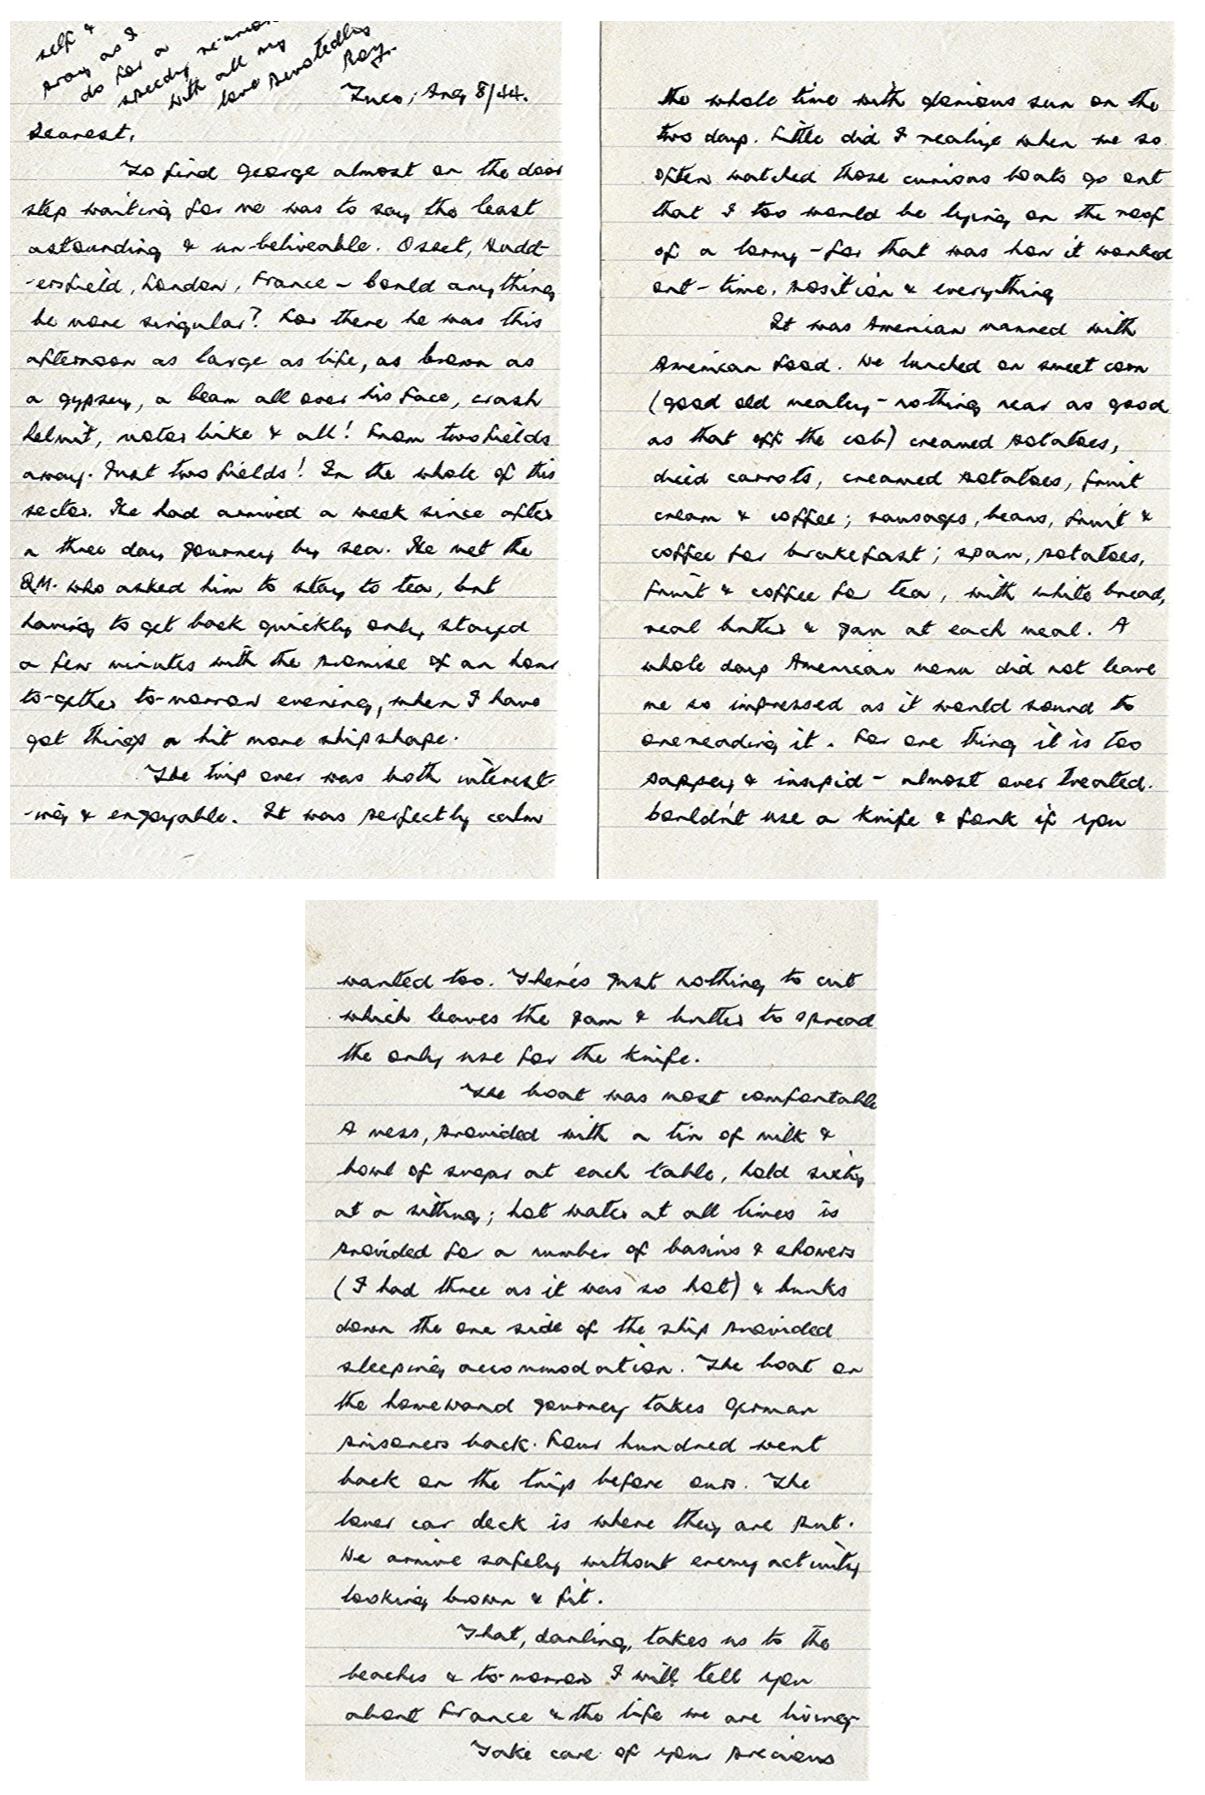 self &
pray as I
do for a
speedy reunion
with all my
love devotedly
Roy.
Tues; Aug 8/44.
Dearest,
To find George almost on the door
step waiting for me was to say the least
astounding & un-beliveable. Osset, Hudd-
-ersfield, London, France – Could anything
be more singular? For there he was this
afternoon as large as life, as brown as
a gypsey, a beam all over his face, crash
helmit, motor bike & all! From two fields
away. Just two fields! In the whole of this
sector. He had arrived a week since after
a three day journey by sea. He met the
Q.M. who asked him to stay to tea, but
having to get back quickly only stayed
a few minutes with the promise of an hour
to-gether to-morrow evening, when I have
got things a bit more shipshape.
The trip over was both interest-
-ing & enjoyable. It was perfectly calm
the whole time with glorious sun on the
two days. Little did I realize when we so
often watched those curious boats go out
that I too would be lying on the roof
of a lorry – for that was how it worked
out – time, position & everything
It was American manned with
American food. We lunched on sweet corn
(good old mealey – nothing near as good
as that off the cob) creamed potatoes,
diced carrots, creamed potatoes, fruit
cream & coffee; sausages, beans, fruit &
coffee for brakefast; spam, potatoes,
fruit & coffee for tea, with white bread,
real butter & jam at each meal. A
whole days American menu did not leave
me so impressed as it would sound to
one reading it. For one thing it is too
sappey & insipid – almost over treated.
Couldn't use a knife & fork if you
wanted too. There's just nothing to cut
which leaves the jam & butter to spread
the only use for the knife.
The boat was most comfortable
A mess, provided with a tin of milk &
bowl of sugar at each table, held sixty
at a sitting; hot water at all times is
provided for a number of basins & showers
(I had three as it was so hot) & bunks
down the one side of the ship provided
sleeping accommodation. The boat on
the homeward journey takes German
prisoners back. Four hundred went
back on the trip before ours. The
lower car deck is where they are put.
We arrive safely without enemy activity
looking brown & fit.
That, darling, takes us to the
beaches & to-morrow I will tell you
about France & the life we are living
Take care of your precious